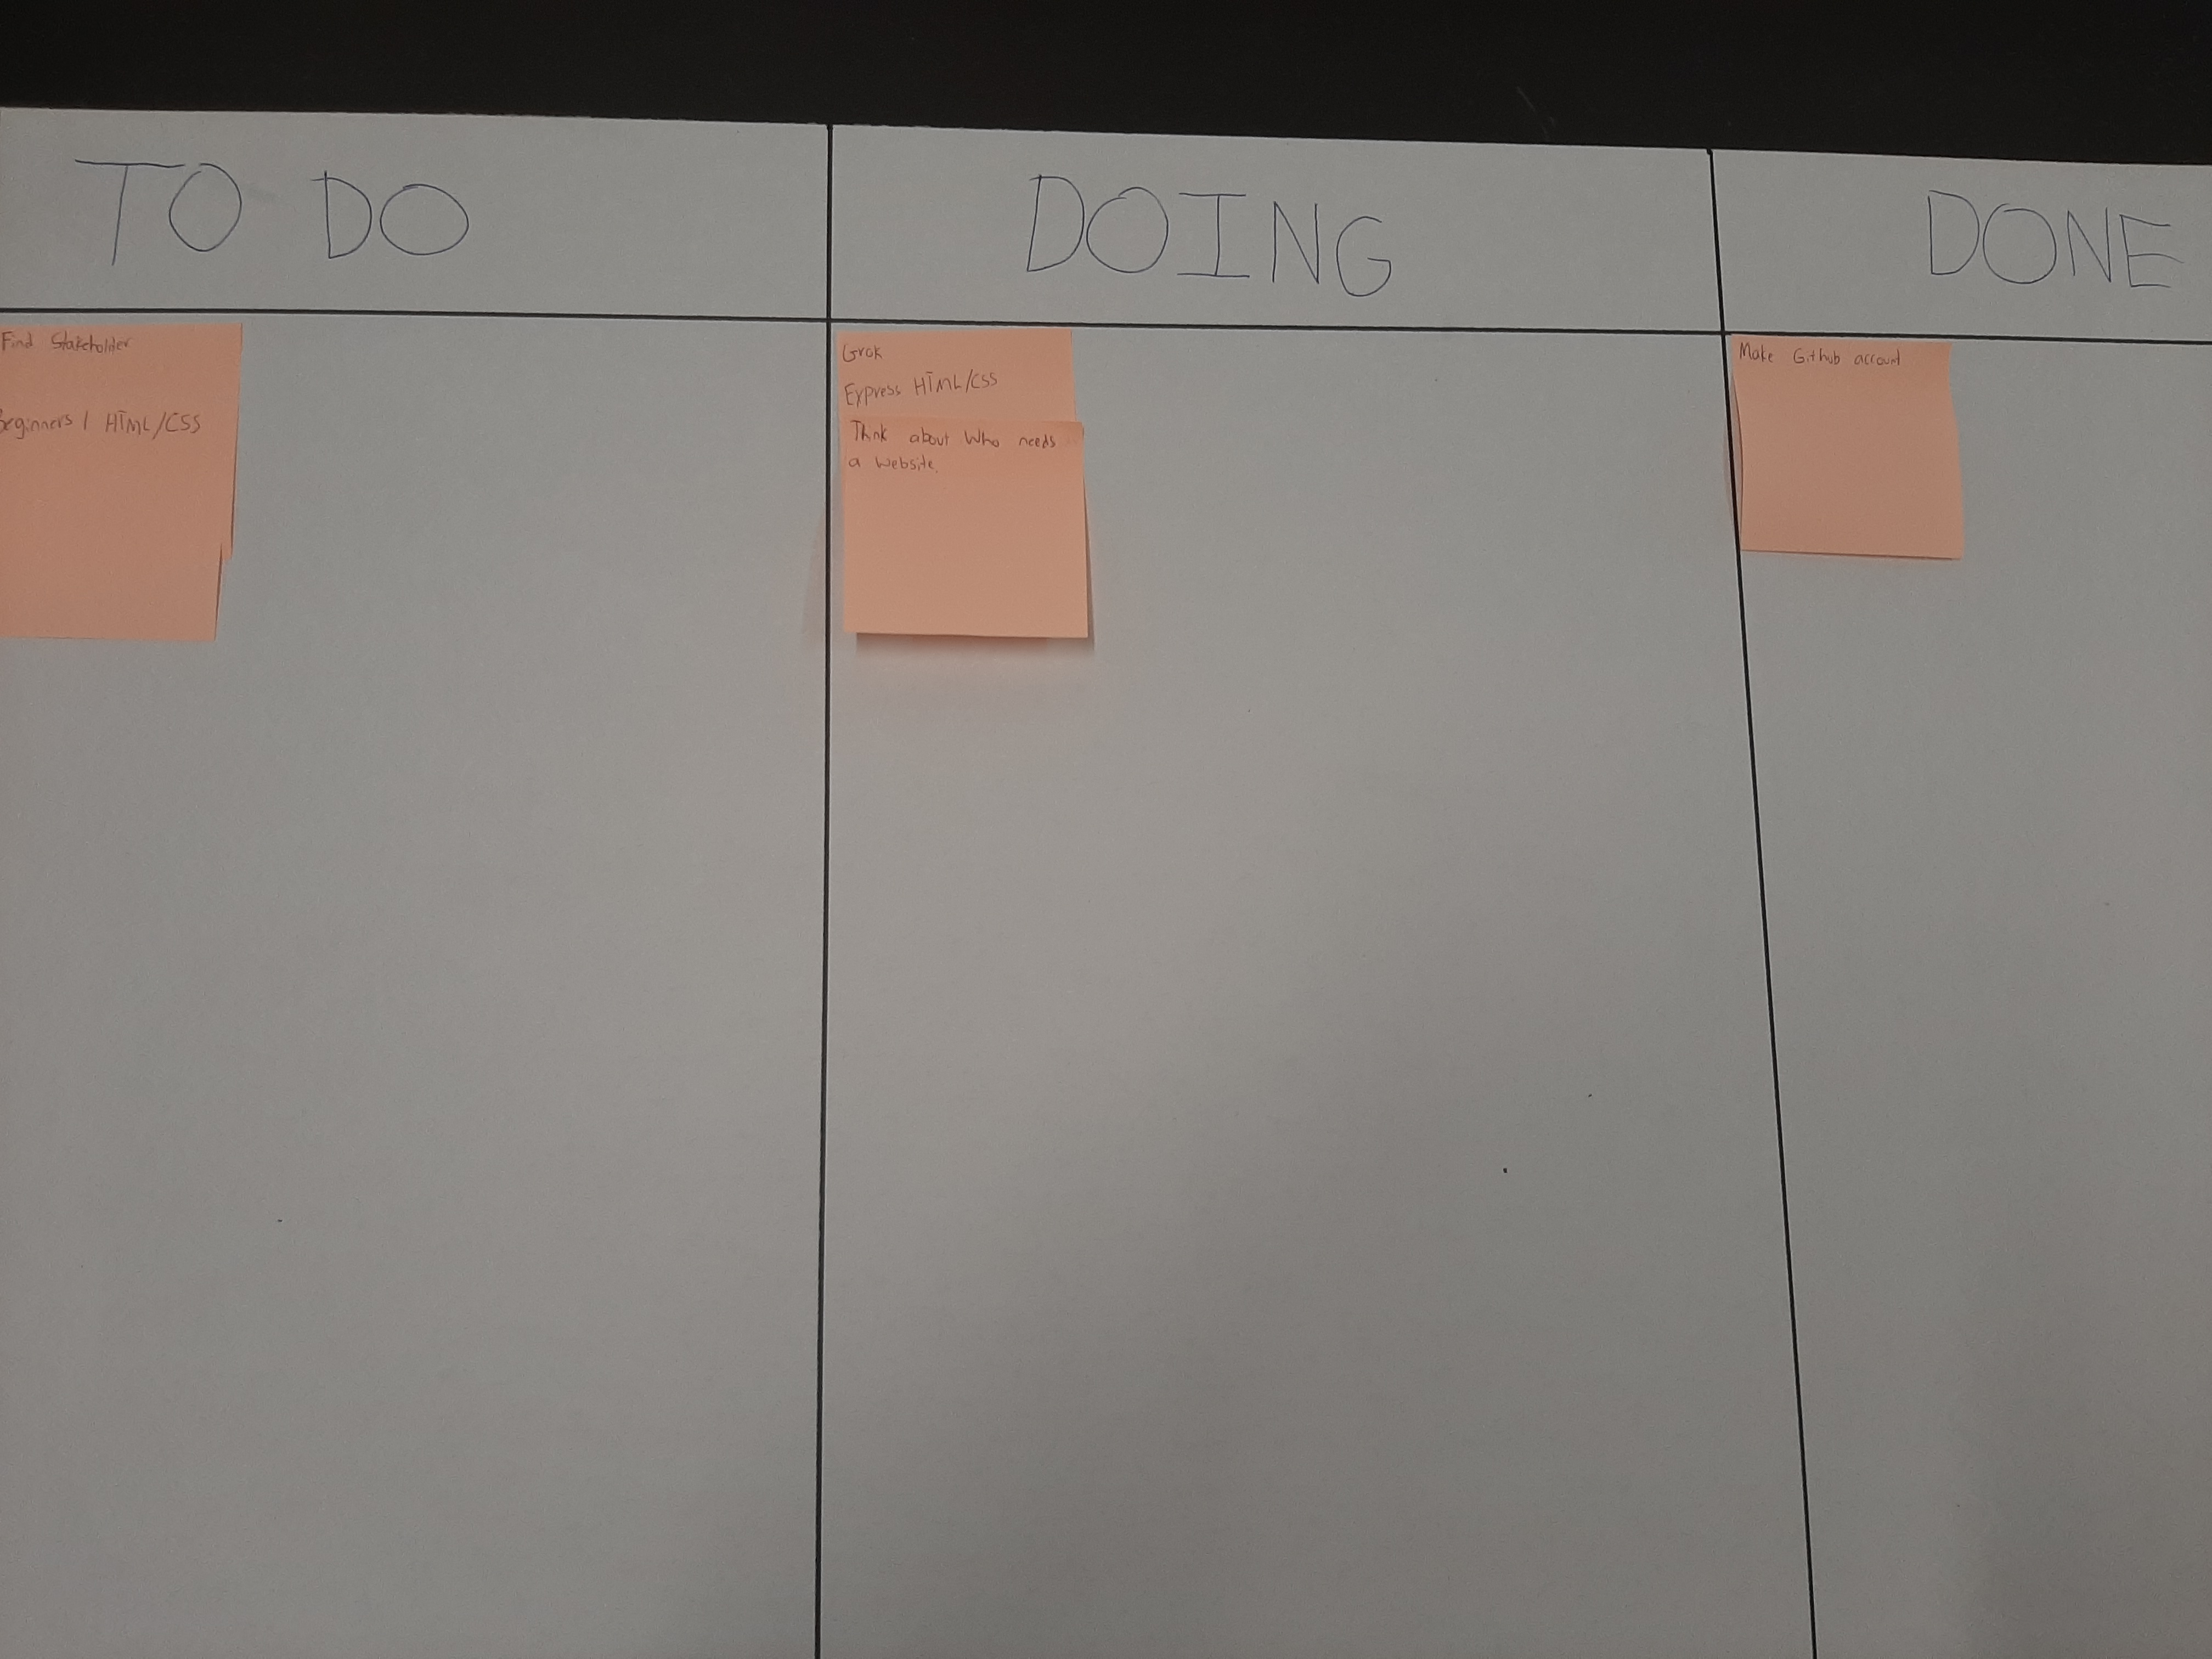 TO DO
DOING
DONE
Find Stakeholder
Beginners / HTML/CSS
Grok
Express HTML/CSS
Think about Who needs
a website.
Make Github account